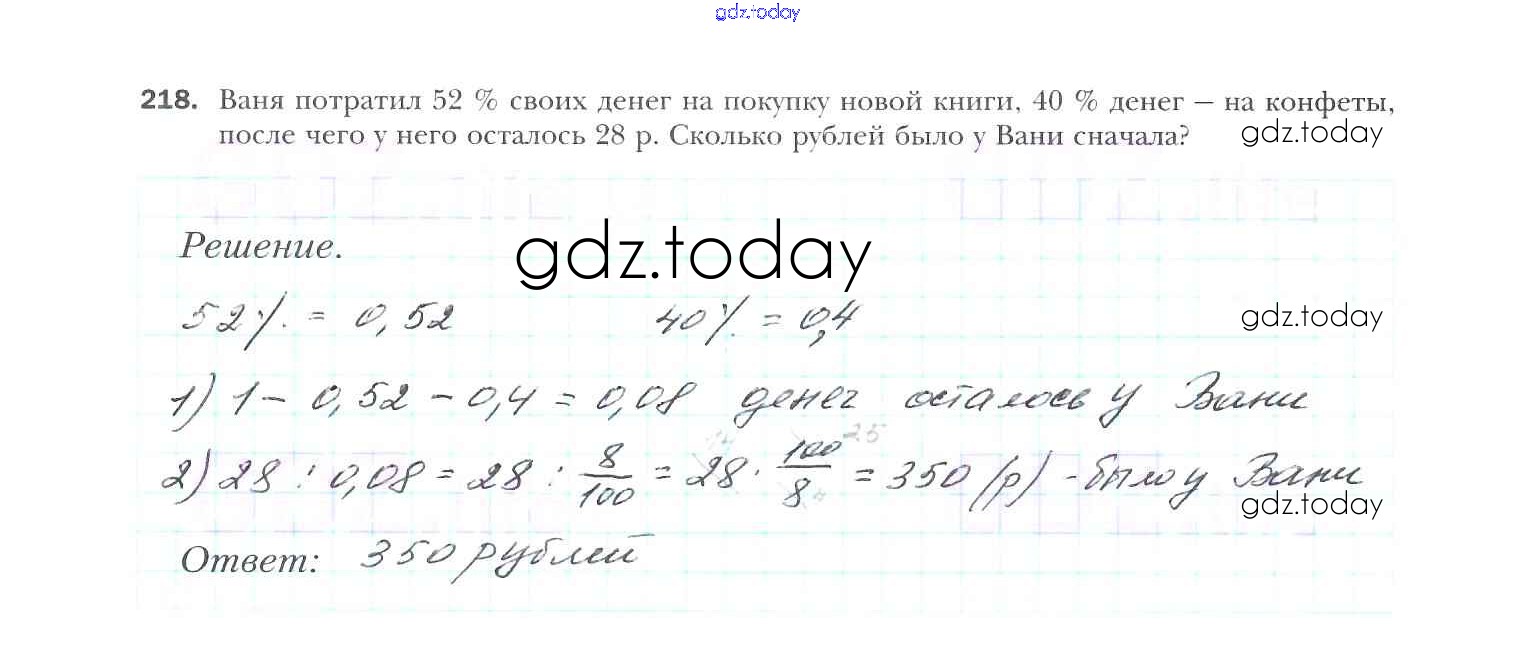 gdz.today
218. Ваня потратил 52 % своих денег на покупку новой книги, 40 % денег – на конфеты,
после чего у него осталось 28 р. Сколько рублей было у Вани сначала?
gdz.today
Решение.
gdz.today
52% = 0,52 40% = 0,4
gdz.today
1) 1 - 0,52 - 0,4 = 0,08 денег осталось у Вани
2) 28 : 0,08 = 28 : 8/100 = 28 · 100/8 = 350 (р) - было у Вани
gdz.today
Ответ: 350 рублей